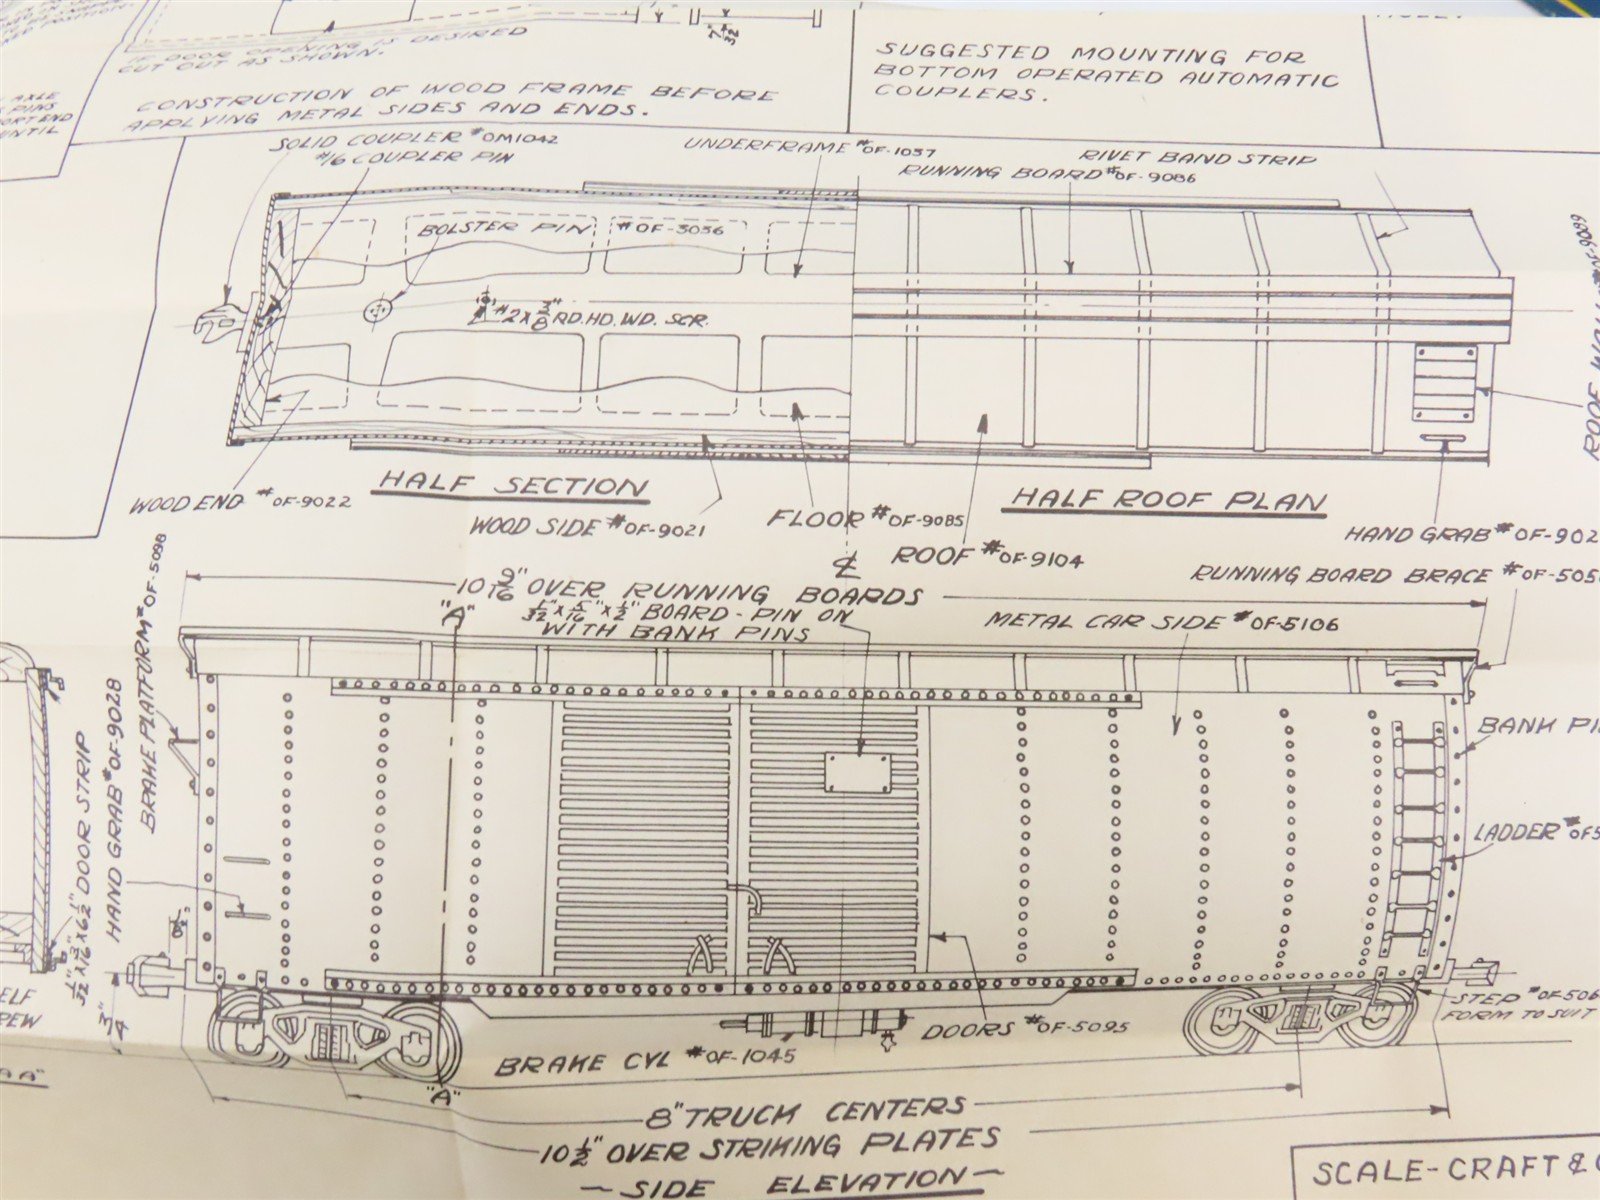 IF DOOR OPENING IS DESIRED
CUT OUT AS SHOWN.
CONSTRUCTION OF WOOD FRAME BEFORE
APPLYING METAL SIDES AND ENDS.
7"
32
SUGGESTED MOUNTING FOR
BOTTOM OPERATED AUTOMATIC
COUPLERS.
AXLE
PINS
UNTIL
SOLID COUPLER #OM1042
#16 COUPLER PIN
UNDERFRAME #OF-1037
RIVET BAND STRIP
RUNNING BOARD #OF-9086
BOLSTER PIN #OF-3036
1" #2 x 3/8" RD. HD. WD. SCR.
WOOD END #OF-9022
HALF SECTION
WOOD SIDE #OF-9021
FLOOR #OF-9085
HALF ROOF PLAN
ROOF #OF-9104
HAND GRAB #OF-902
RUNNING BOARD BRACE #OF-505
℄
10 9/16" OVER RUNNING BOARDS
1/32" x 5/16" x 1/2" BOARD - PIN ON
WITH BANK PINS
"A"
METAL CAR SIDE #OF-5106
BRAKE PLATFORM #OF-5098
HAND GRAB #OF-9028
1/32" x 3/16" x 6 1/2" DOOR STRIP
BANK PI
LADDER #OF5
STEP #OF-506
FORM TO SUIT
3"
4
DOORS #OF-5095
BRAKE CYL #OF-1045
"A"
8" TRUCK CENTERS
10 1/2" OVER STRIKING PLATES
- SIDE ELEVATION -
SCALE-CRAFT &